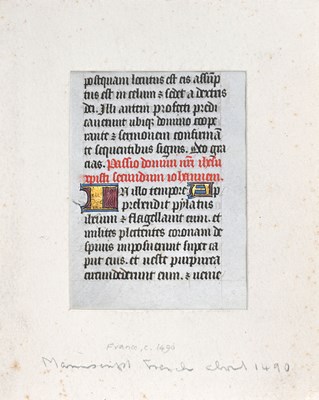 postquam locutus est eis assup
tus est in celum & sedet a dextris
dei. Illi autem profecti predi
cauerunt ubiqȝ domino coope
rante & sermonem confirman
te sequentibus signis. Deo gra
cias. Passio domini nr̄i ihesu
xp̄isti secundum iohannem.
IN illo tempore Ap
prehendit pylatus
ihesum & flagellauit eum. et
milites plectentes coronam de
spinis imposuerunt super ca
put eius. et ueste purpurea
circumdederunt eum. & ueniе
France, c. 1490
Manuscript French about 1490